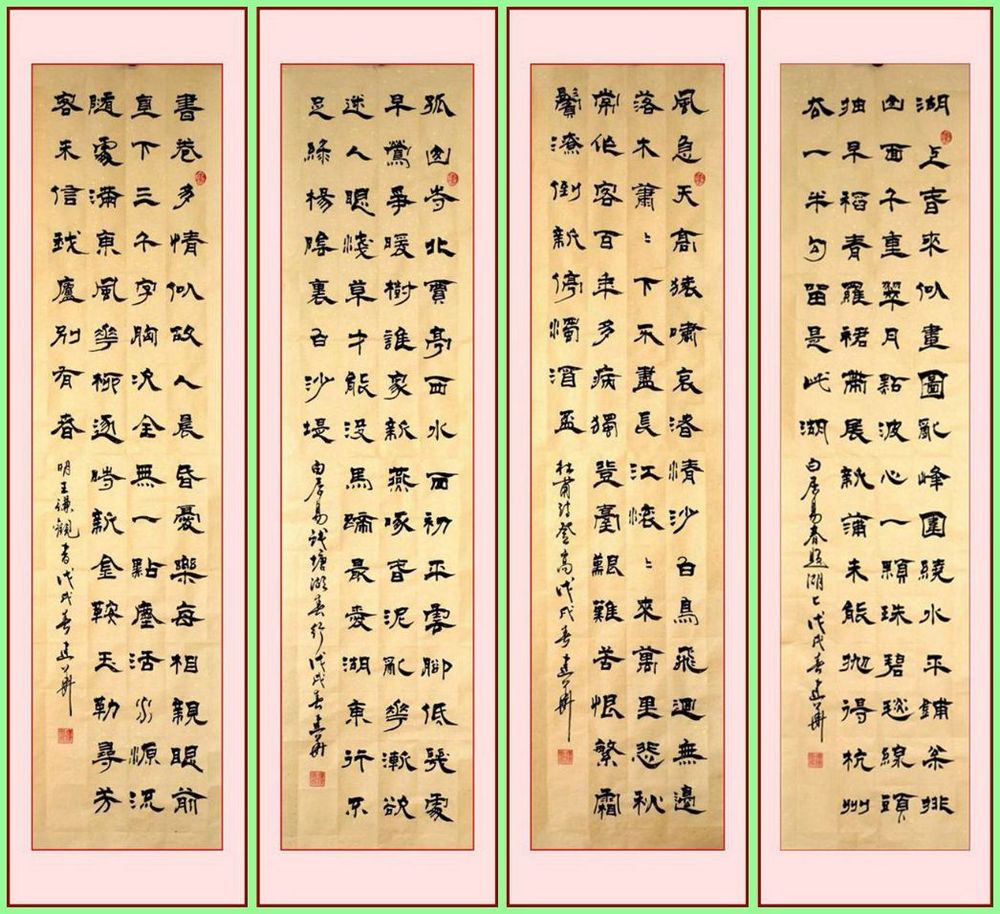 湖上春來似畫圖亂峰圍繞水平鋪松排
山面千重翠月點波心一顆珠碧毯線頭
抽早稻青羅裙帶展新蒲未能抛得杭州
去一半勾留是此湖
白居易春題湖上戊戌春建華
風急天高猿嘯哀渚清沙白鳥飛迴無邊
落木蕭〻下不盡長江滾〻來萬里悲秋
常作客百年多病獨登臺艱難苦恨繁霜
鬢潦倒新停濁酒盃
杜甫詩登高戊戌春建華
孤山寺北賈亭西水面初平雲腳低幾處
早鶯爭暖樹誰家新燕啄春泥亂華漸欲
迷人眼淺草才能沒馬蹄最愛湖東行不
足綠楊陰裏白沙堤
白居易錢塘湖春行戊戌春建華
書卷多情似故人晨昏憂樂每相親眼前
直下三千字胸次全無一點塵活水源流
隨處滿東風華柳逐時新金鞍玉勒尋芳
客未信我廬別有春
明于謙觀書戊戌春建華